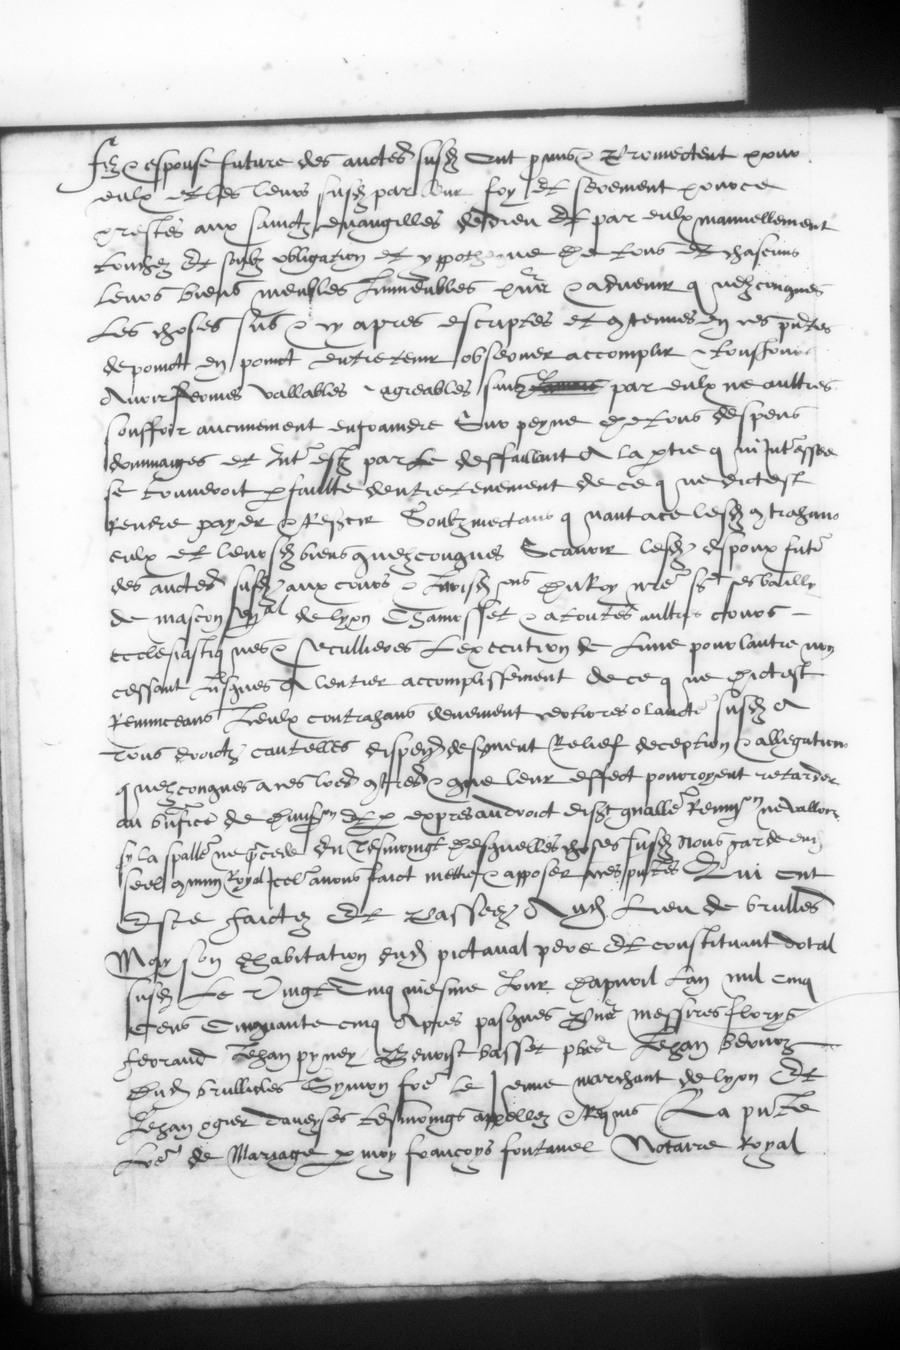 espouse future des auctes susd ont promis & Promectent pour
eulx et les leurs susd par leur foy et serement pource
prestes aux sainctz evangilles de dieu Et par eulx manuellement
touchez Et soubz obligation et yppotheque de tous et chascuns
leurs biens meubles Immeubles pntz & advenir quelzconques
Les choses sus & cy apres escriptes et contenues en ces pntes
de poinct en poinct entretenir observer accomplir & tousjours
Avoir fermes vallables & agreables sans par eulx ne aultres
souffrir aucunement enfraindre Sur peyne de tous despens
dommaiges et Interestz par Le deffaillant A la ptie qui Interessee
se trouveroit p faulte dentretenement de ce que dict est
Rendre payer & Reffcir Soubzmectans quant a ce lesd contrahans
eulx et leursd biens quelzconques Scavoir lesd espoux futr
des auctes susd aux cours & du Roy nre sr ses bailly
de mascon de lyon & a toutes aultres cours
ecclesiastiques & seculieres Lexecution de Lune pour lautre non
cessant Jusques A lentier accomplissement de ce que dict est
Renunceans Iceulx contrahans susd A
Tous droictz cautelles Relief deception & allegations
quelzconques a ces lres & que leur effect pourroyent retarder
au bnfice de Et p expres au droict disant gnalle Renunson ne valloir
sy la spalle ne precede En Tesmoingt desquelles choses susd Nous garde dud
seel commun Royal Icelluy avons faict mettre & apposer a ces pntes Qui ont
Este faictes Et Passees Aud Lieu de brulles
May son dhabitation dud pictaval pere Et constituant dotal
susd Le Vingt Cinquiesme Jour dapvril Lan mil cinq
Cens Cinquante cinq Apres pasques Pns messires florys
ferraud Jehan pyney Benoist basset pbres Jehan
Dud brullioles Symon le Jeune marchant de lyon Et
Jehan ogier tesmoings appellez & Requis La pnte
Lre de Mariage p moy francoys fontanel Notaire Royal